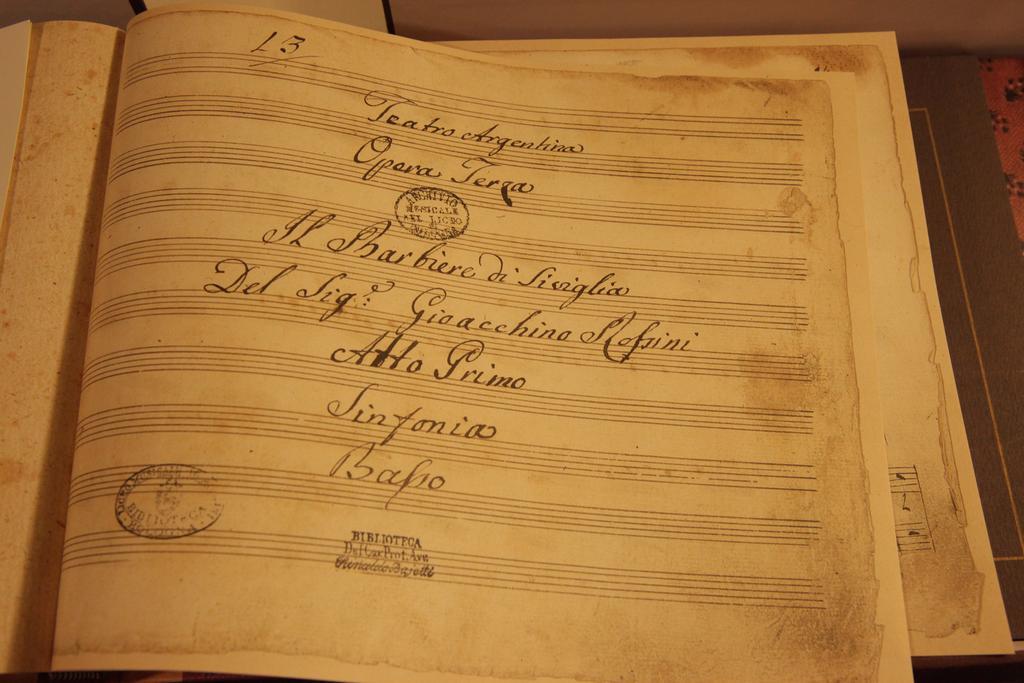 13
Teatro Argentina
Opera Terza
ARCHIVIO
MUSICALE
DEL LICEO
Il Barbiere di Siviglia
Del Sigᵉ: Gioacchino Roſsini
Atto Primo
Sinfonia
Baſso
BIBLIOTECA
BOLOGNA
BIBLIOTECA
Del Cav. Prof. Avv.